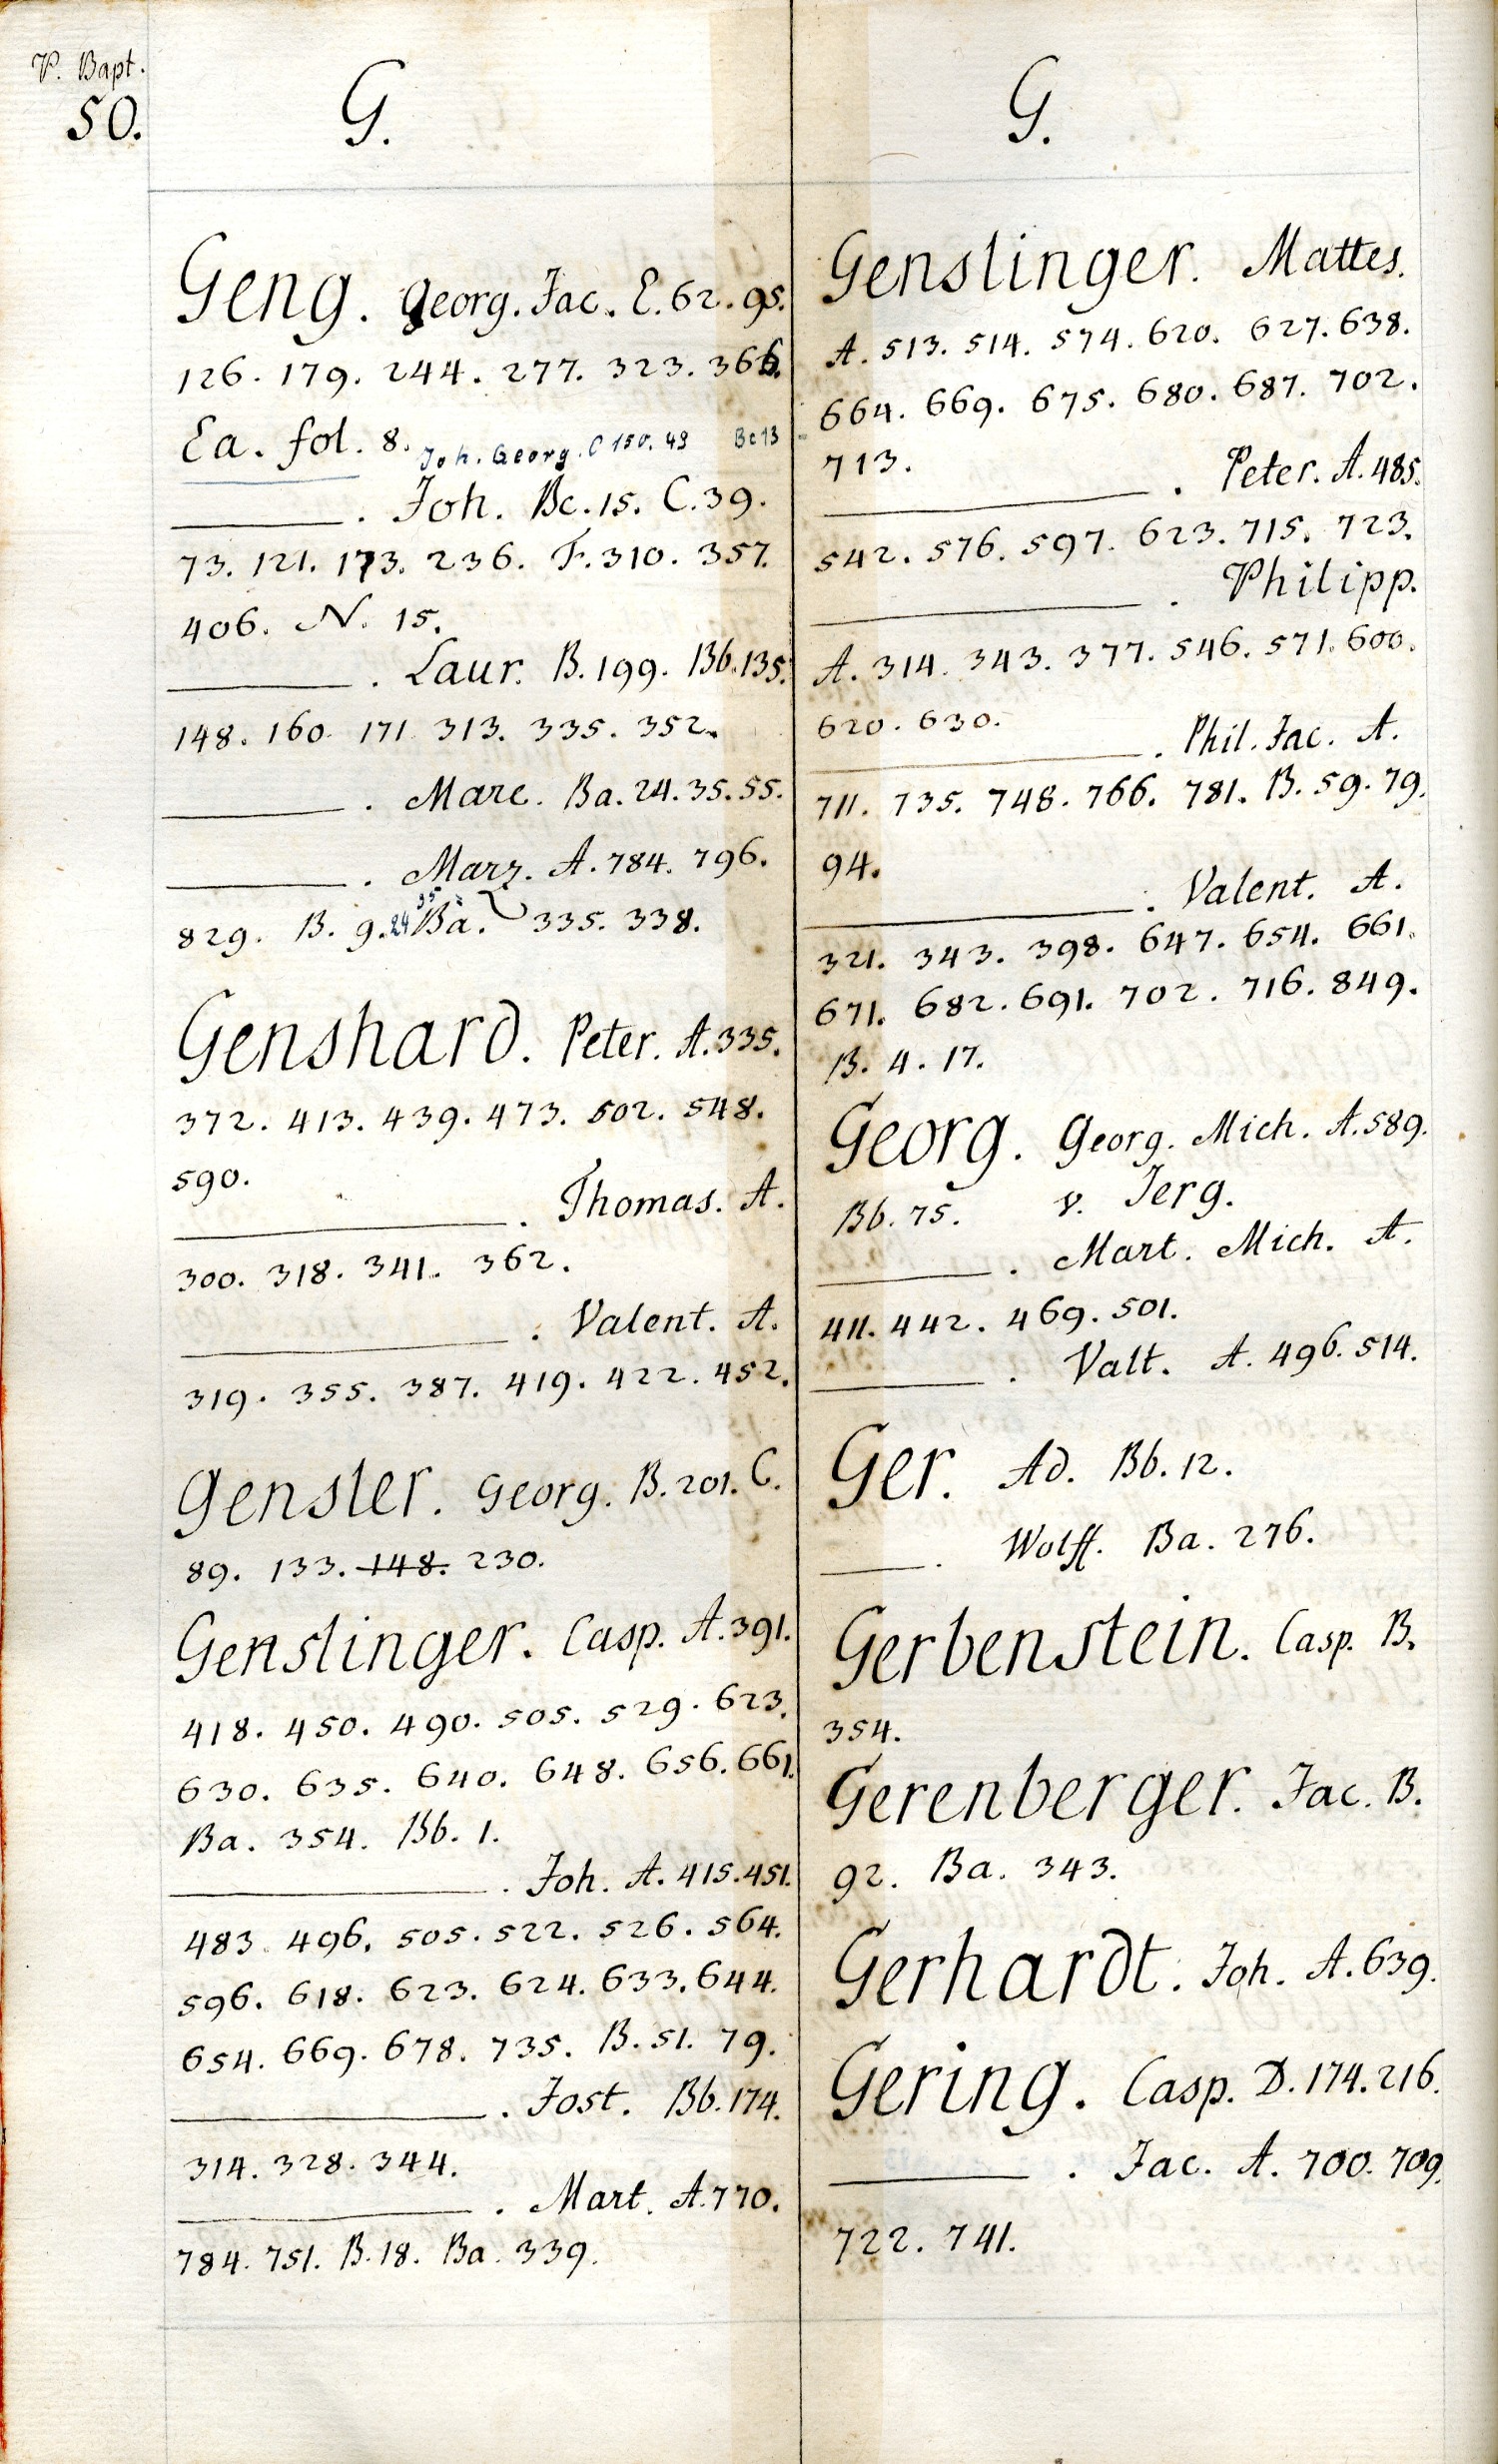 V. Bapt.
50.
G.
Geng. Georg. Jac. E. 62. 95.
126. 179. 244. 277. 323. 366.
Ea. fol. 8. Joh. Georg. C 150. 49 Bc 13
———. Joh. Bc. 15. C. 39.
73. 121. 173. 236. F. 310. 357.
406. N. 15.
———. Laur. B. 199. Bb. 135.
148. 160. 171. 313. 335. 352.
———. Marc. Ba. 24. 35. 55.
———. Marz. A. 784. 796.
829. B. 9. 24 35 Ba. 335. 338.
Genshard. Peter. A. 335.
372. 413. 439. 473. 502. 548.
590.
———. Thomas. A.
300. 318. 341. 362.
———. Valent. A.
319. 355. 387. 419. 422. 452.
Gensler. Georg. B. 201. C.
89. 133. 148. 230.
Genslinger. Casp. A. 391.
418. 450. 490. 505. 529. 623.
630. 635. 640. 648. 656. 661.
Ba. 354. Bb. 1.
———. Joh. A. 415. 451.
483. 496. 505. 522. 526. 564.
596. 618. 623. 624. 633. 644.
654. 669. 678. 735. B. 51. 79.
———. Jost. Bb. 174.
314. 328. 344.
———. Mart. A. 770.
784. 751. B. 18. Ba. 339.
G.
Genslinger. Mattes.
A. 513. 514. 574. 620. 627. 638.
664. 669. 675. 680. 687. 702.
713.
———. Peter. A. 485.
542. 576. 597. 623. 715. 723.
———. Philipp.
A. 314. 343. 377. 546. 571. 600.
620. 630.
———. Phil. Jac. A.
711. 735. 748. 766. 781. B. 59. 79.
94.
———. Valent. A.
321. 343. 398. 647. 654. 661.
671. 682. 691. 702. 716. 849.
B. 4. 17.
Georg. Georg. Mich. A. 589.
Bb. 75. v. Jerg.
———. Mart. Mich. A.
411. 442. 469. 501.
———. Valt. A. 496. 514.
Ger. Ad. Bb. 12.
———. Wolff. Ba. 276.
Gerbenstein. Casp. B.
354.
Gerenberger. Jac. B.
92. Ba. 343.
Gerhardt. Joh. A. 639.
Gering. Casp. D. 174. 216.
———. Jac. A. 700. 709.
722. 741.